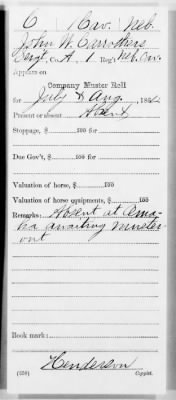 C | Cav. | Neb.
John W. Carrothers
Sergt, Co. A, 1 Reg't Neb. Cav.
Appears on
Company Muster Roll
for July & Aug., 1864.
Present or absent Absent
Stoppage, $ 100 for
Due Gov't, $ 100 for
Valuation of horse, $ 100
Valuation of horse equipments, $ 100
Remarks: Absent at Oma-
ha awaiting muster
out
Book mark:
Henderson
(358) Copyist.